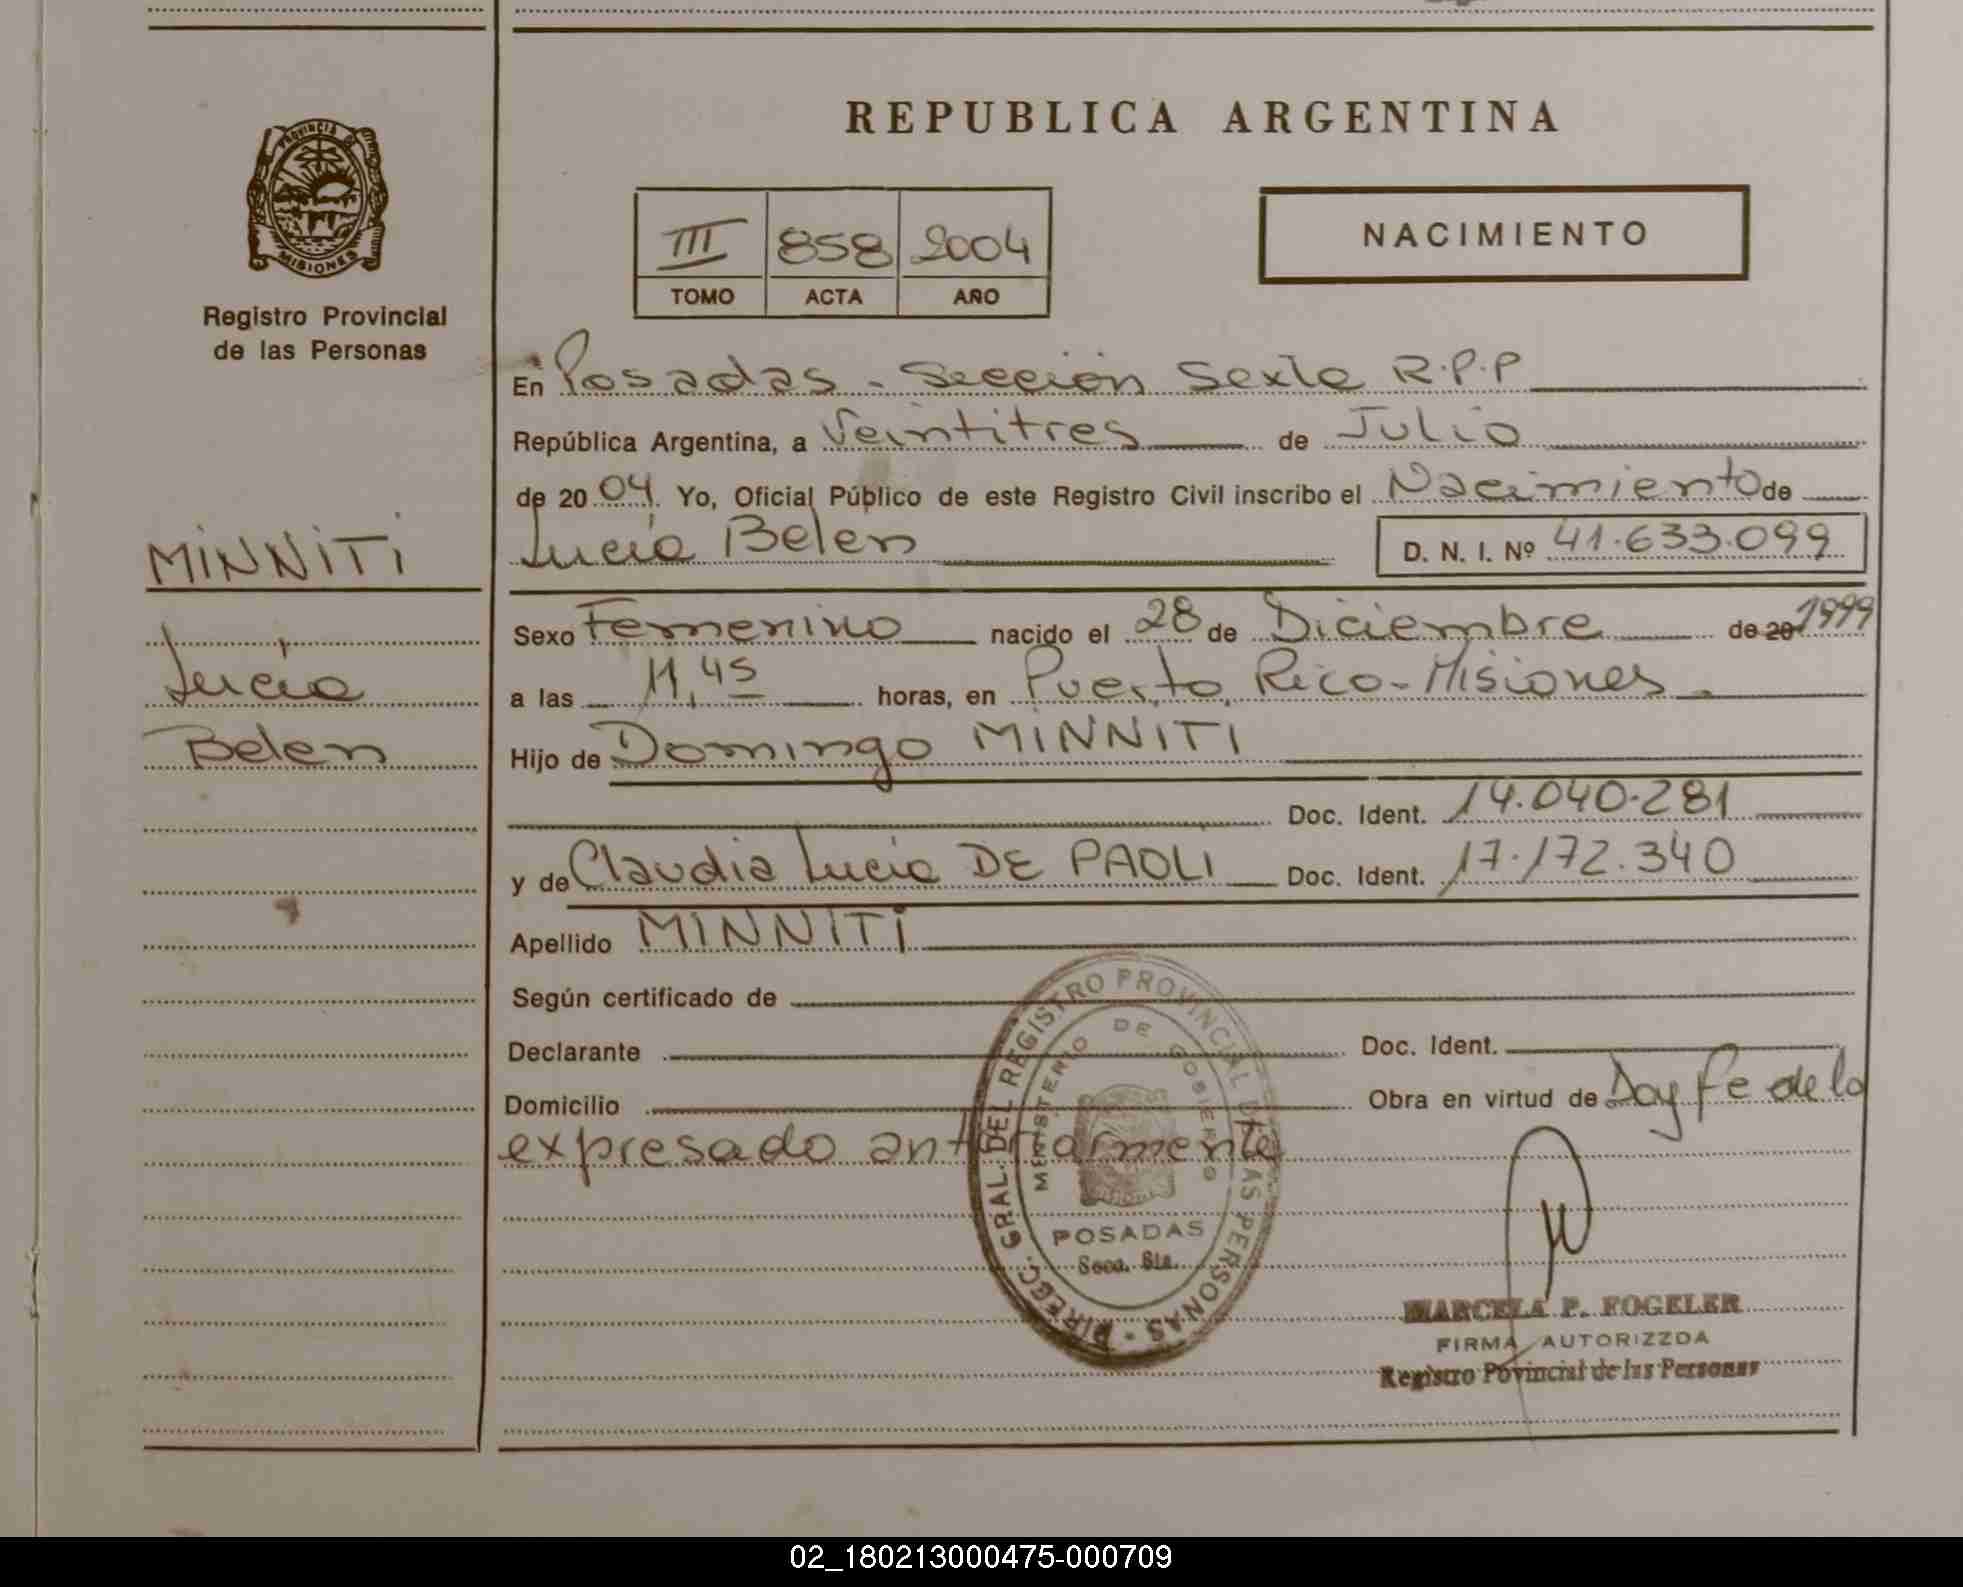 PROVINCIA DE
MISIONES
Registro Provincial
de las Personas
MINNITI
Lucía
Belen
REPUBLICA ARGENTINA
III 858 2004
TOMO ACTA AÑO
NACIMIENTO
En Posadas - Sección Sexta R.P.P
República Argentina, a Veintitres de Julio
de 2004. Yo, Oficial Público de este Registro Civil inscribo el Nacimiento de
Lucía Belen D. N. I. Nº 41.633.099
Sexo Femenino nacido el 28 de Diciembre de 20 1999
a las 11,45 horas, en Puerto Rico-Misiones.
Hijo de Domingo MINNITI
Doc. Ident. 14.040.281
y de Claudia Lucia DE PAOLI Doc. Ident. 17.172.340
Apellido MINNITI
Según certificado de
Declarante Doc. Ident.
Domicilio Obra en virtud de Doy fe de lo
expresado anteriormente
DIRECC. GRAL. DEL REGISTRO PROVINCIAL DE LAS PERSONAS
MINISTERIO DE GOBIERNO
POSADAS
Secc. 6ta.
MARCELA P. FOGELER
FIRMA AUTORIZZDA
Registro Povincial de las Personas
02_180213000475-000709